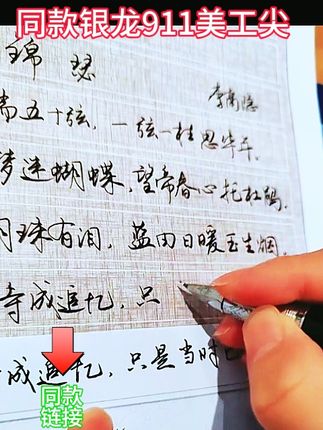 同款银龙911美工尖
锦 瑟
李商隐
五十弦,一弦一柱思华年。
梦迷蝴蝶,望帝春心托杜鹃。
月珠有泪,蓝田日暖玉生烟。
待成追忆,只
成追忆,只是当时
同款
链接